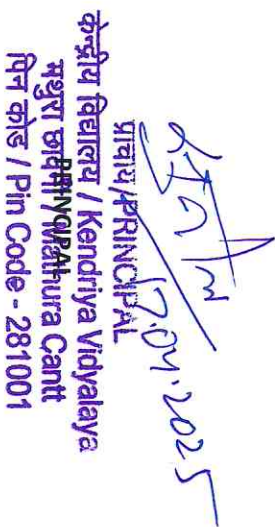 17.04.2025
प्राचार्य/PRINCIPAL
केन्द्रीय विद्यालय / Kendriya Vidyalaya
मथुरा छावनी / Mathura Cantt
PRINCIPAL
पिन कोड / Pin Code - 281001